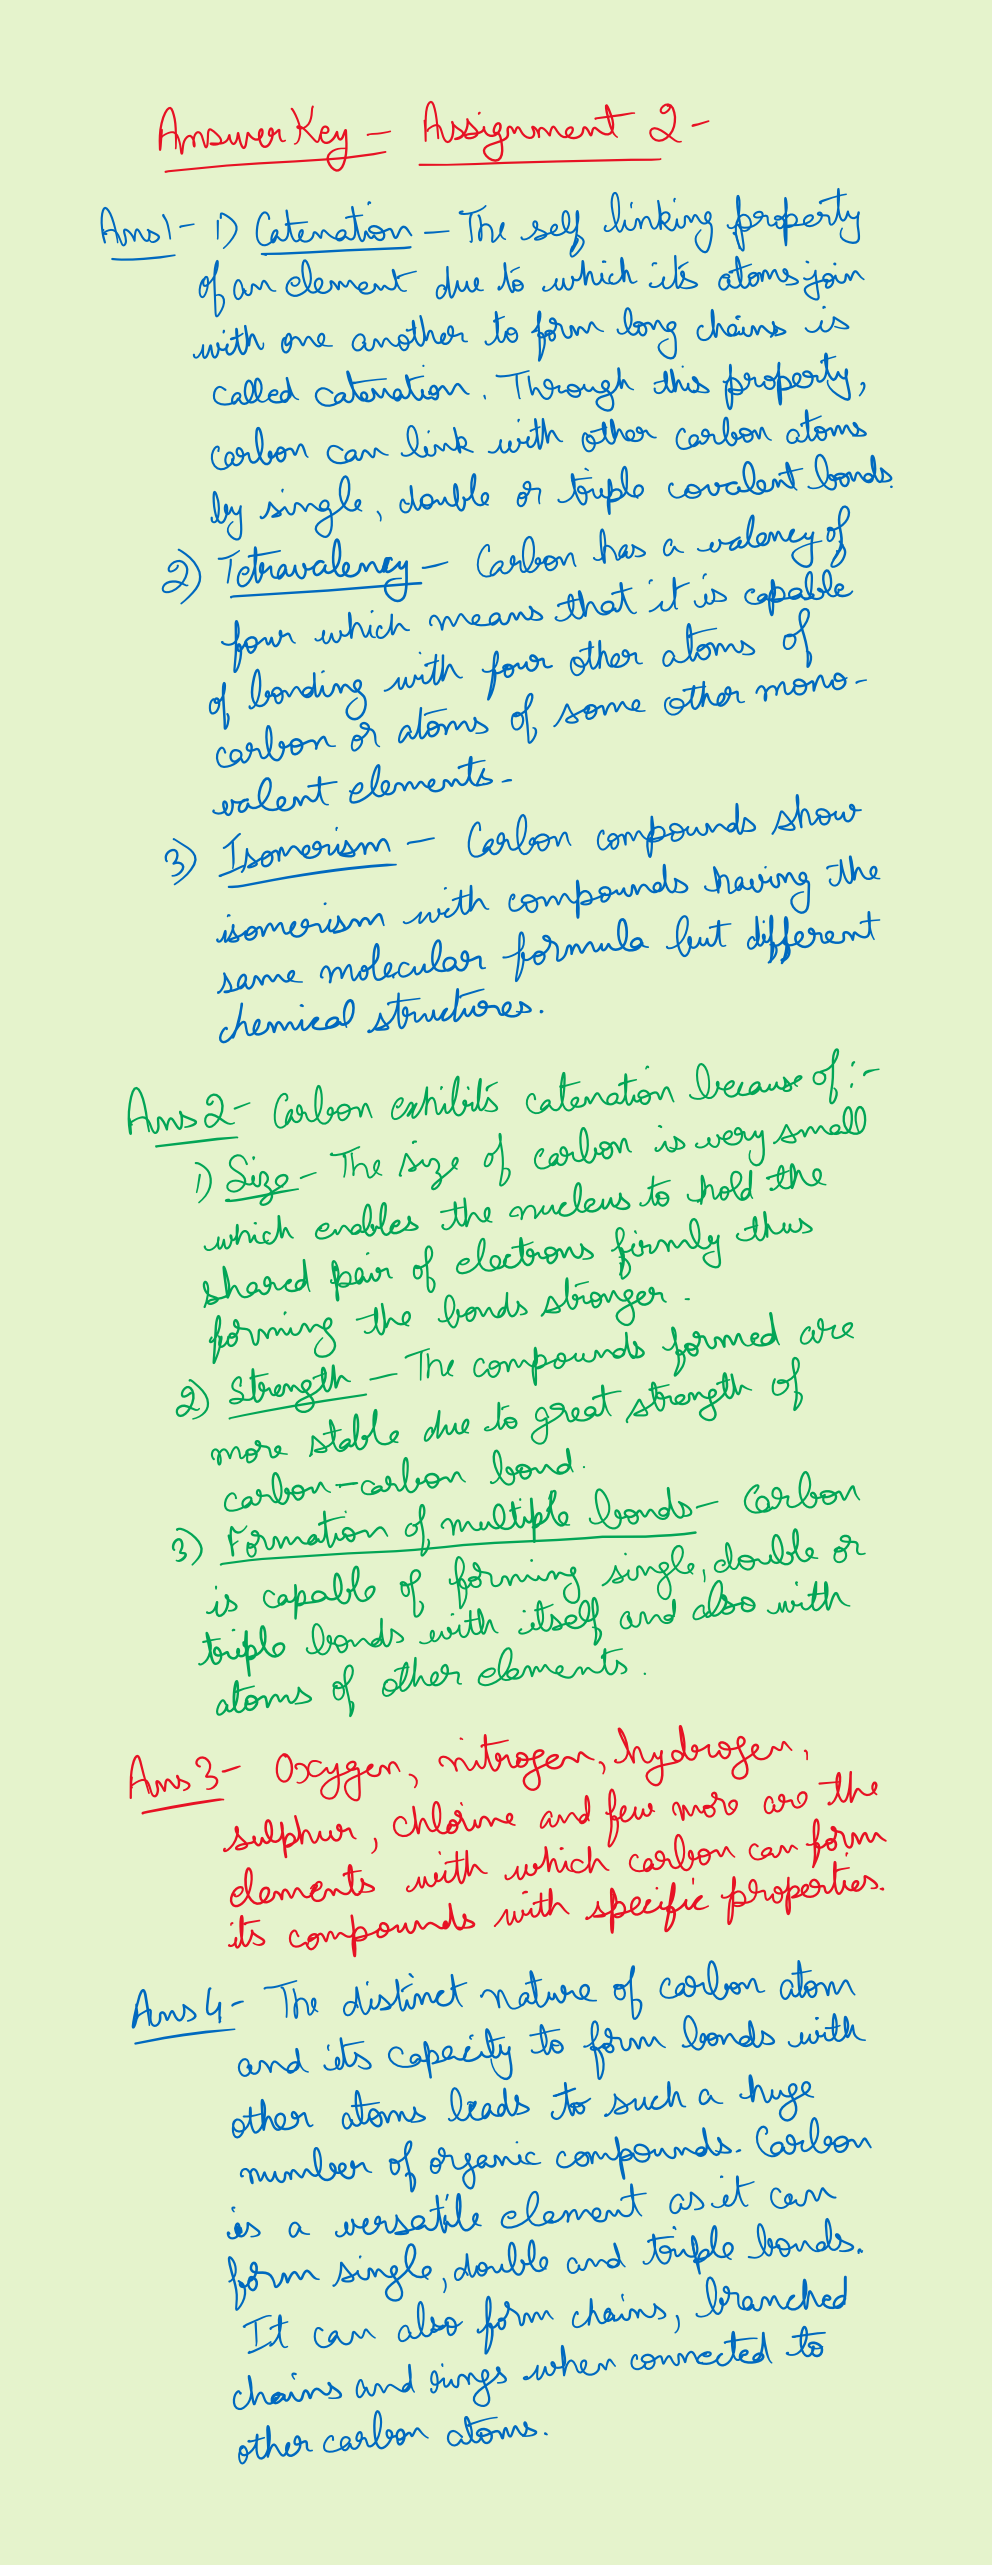 Answer Key - Assignment 2 -
Ans1 - 1) Catenation - The self linking property
of an element due to which its atoms join
with one another to form long chains is
called catenation. Through this property,
carbon can link with other carbon atoms
by single, double or triple covalent bonds.
2) Tetravalency - Carbon has a valency of
four which means that it is capable
of bonding with four other atoms of
carbon or atoms of some other mono-
valent elements.
3) Isomerism - Carbon compounds show
isomerism with compounds having the
same molecular formula but different
chemical structures.
Ans 2 - Carbon exhibits catenation because of :-
1) Size - The size of carbon is very small
which enables the nucleus to hold the
shared pair of electrons firmly thus
forming the bonds stronger.
2) Strength - The compounds formed are
more stable due to great strength of
carbon-carbon bond.
3) Formation of multiple bonds - Carbon
is capable of forming single, double or
triple bonds with itself and also with
atoms of other elements.
Ans 3 - Oxygen, nitrogen, hydrogen,
sulphur, chlorine and few more are the
elements with which carbon can form
its compounds with specific properties.
Ans 4 - The distinct nature of carbon atom
and its capacity to form bonds with
other atoms leads to such a huge
number of organic compounds. Carbon
is a versatile element as it can
form single, double and triple bonds.
It can also form chains, branched
chains and rings when connected to
other carbon atoms.